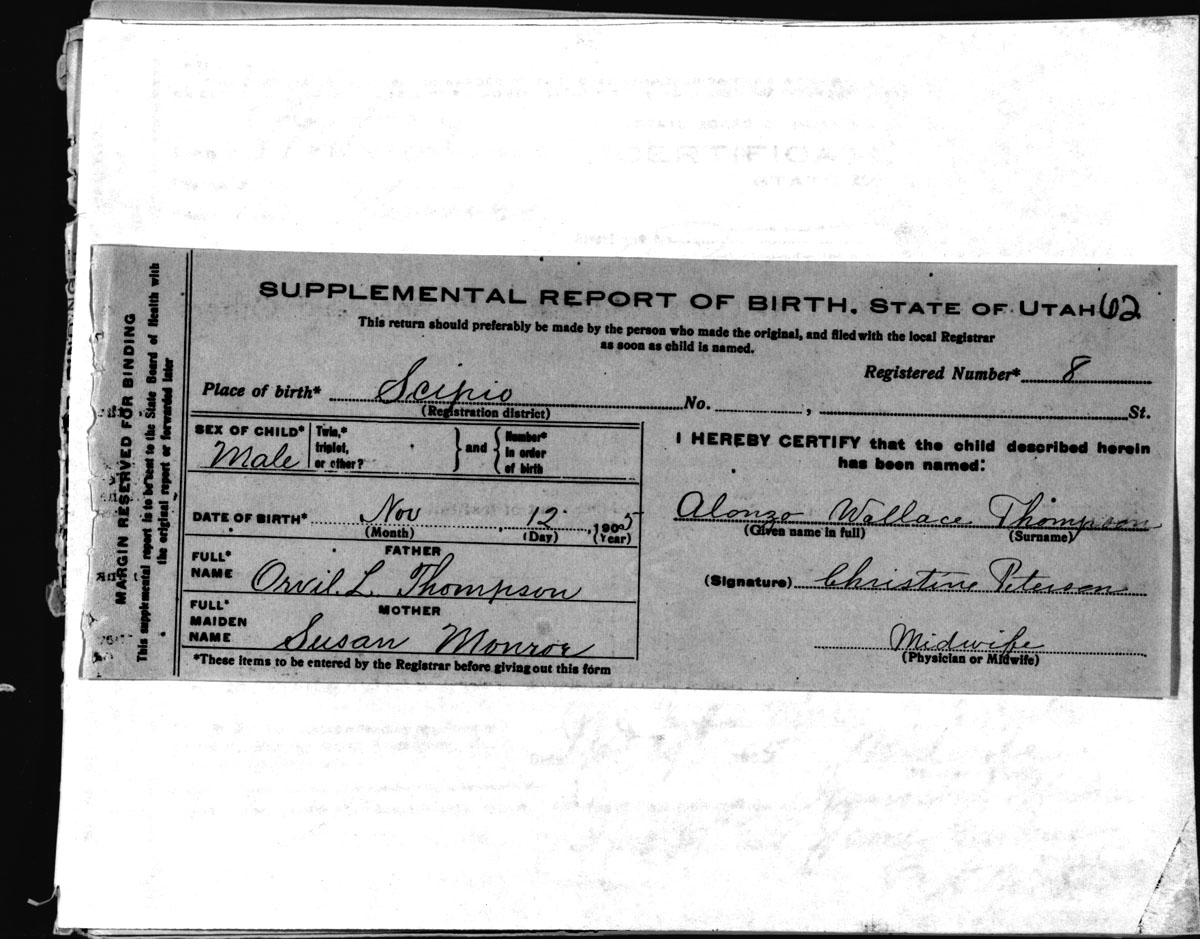 SUPPLEMENTAL REPORT OF BIRTH. STATE OF UTAH 62
This return should preferably be made by the person who made the original, and filed with the local Registrar
as soon as child is named.
Registered Number* 8
Place of birth* Scipio No. , St.
(Registration district)
SEX OF CHILD* Male
Twin,* triplet, or other? } and { Number* in order of birth
DATE OF BIRTH* Nov 12 1905
(Month) (Day) (Year)
FATHER
FULL* NAME Orvil L. Thompson
MOTHER
FULL* MAIDEN NAME Susan Monroe
*These items to be entered by the Registrar before giving out this form
I HEREBY CERTIFY that the child described herein
has been named:
Alonzo Wallace Thompson
(Given name in full) (Surname)
(Signature) Christine Peterson
Midwife
(Physician or Midwife)
MARGIN RESERVED FOR BINDING
This supplemental report is to be sent to the State Board of Health with
the original report or forwarded later